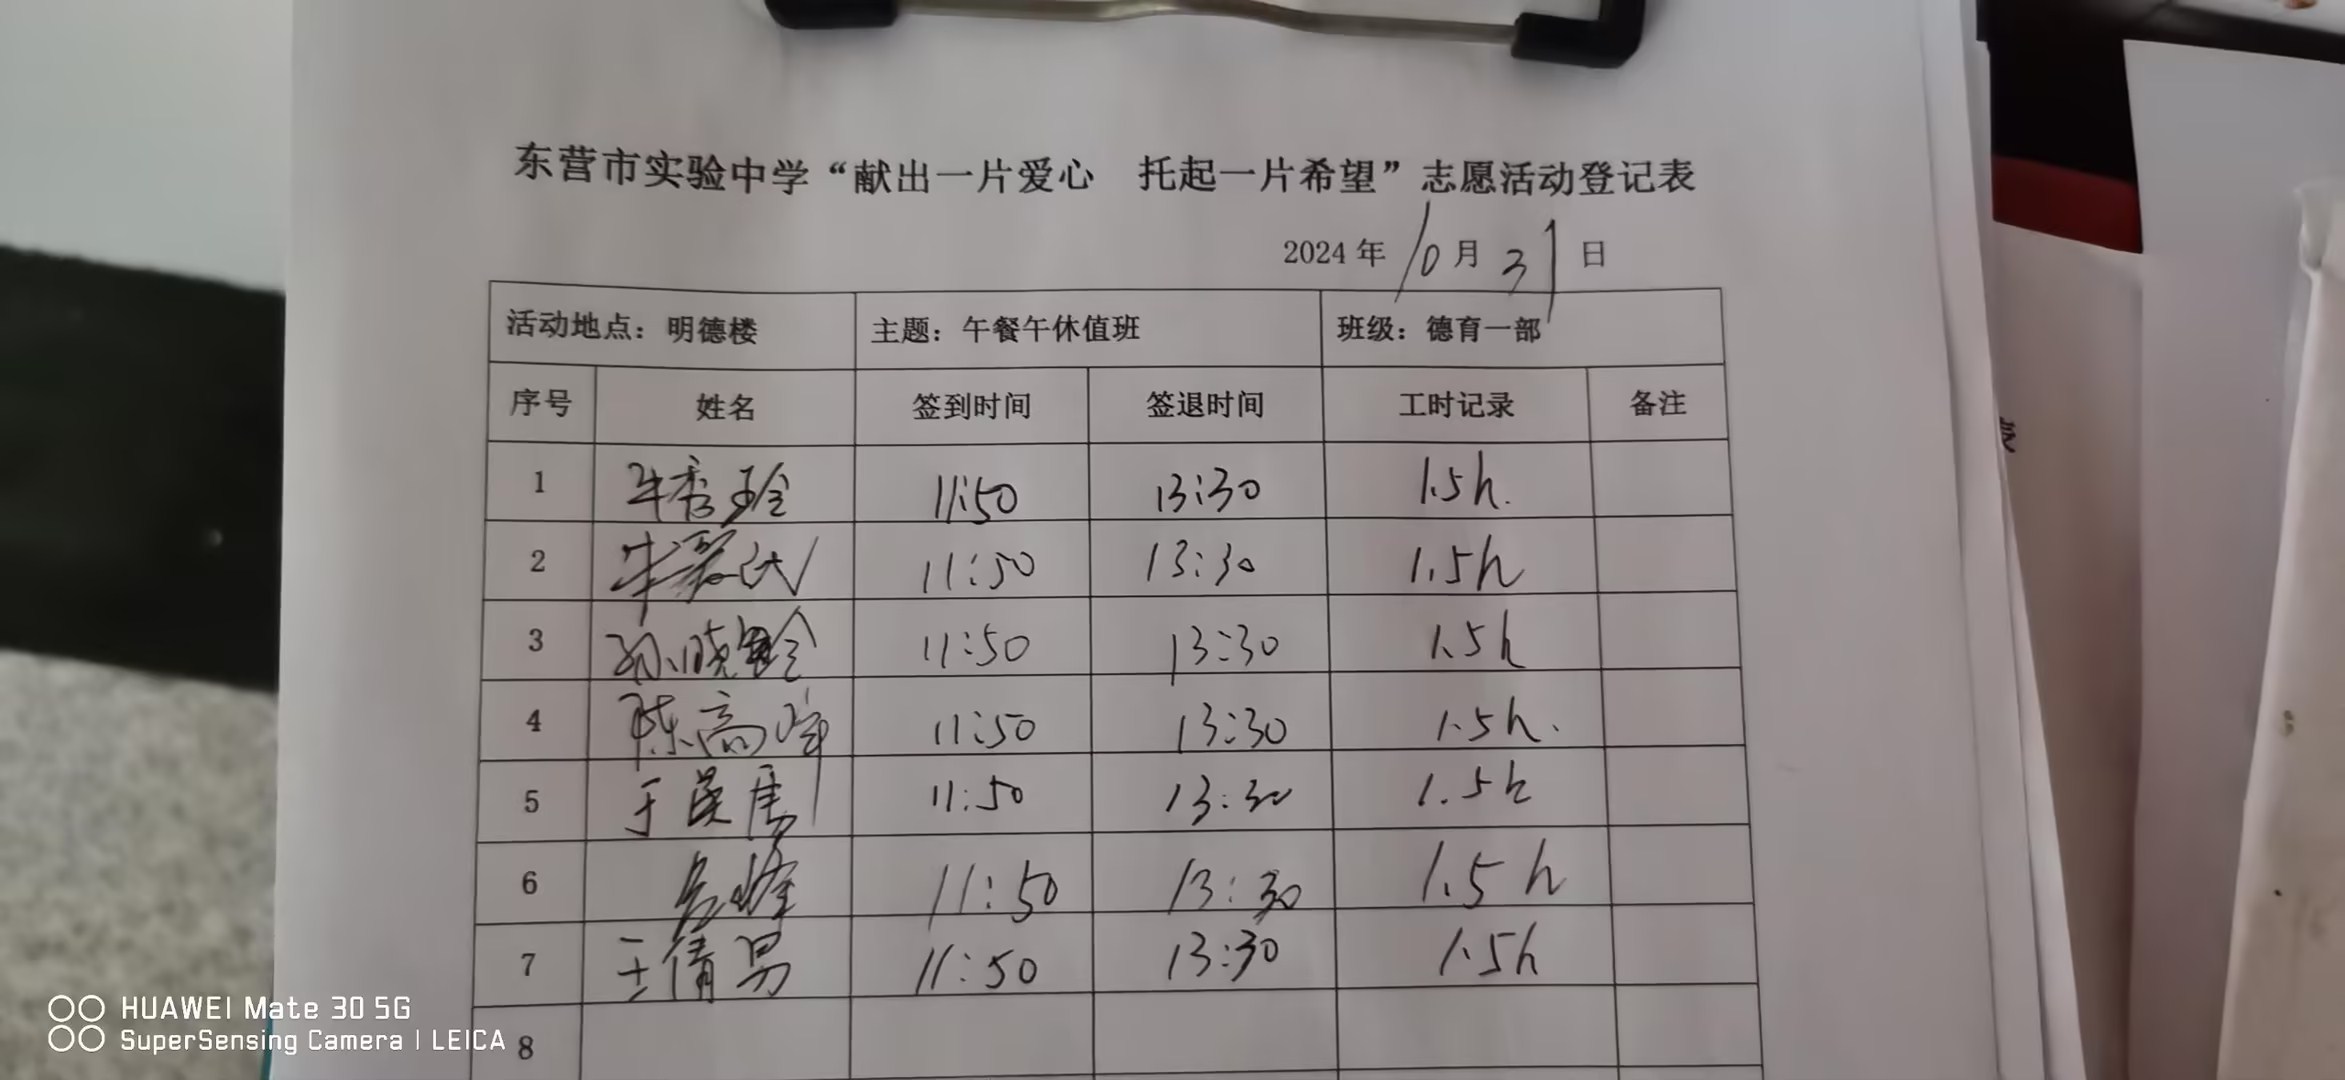 东营市实验中学“献出一片爱心 托起一片希望”志愿活动登记表
2024 年 10 月 31 日
活动地点：明德楼 主题：午餐午休值班 班级：德育一部
序号 姓名 签到时间 签退时间 工时记录 备注
1 牛秀玲 11:50 13:30 1.5h.
2 牛 11:50 13:30 1.5h
3 孙晓 11:50 13:30 1.5h
4 陈高峰 11:50 13:30 1.5h.
5 于 11:50 13:30 1.5h
6 11:50 13:30 1.5h
7 王倩男 11:50 13:30 1.5h
8
表
HUAWEI Mate 30 5G
SuperSensing Camera | LEICA